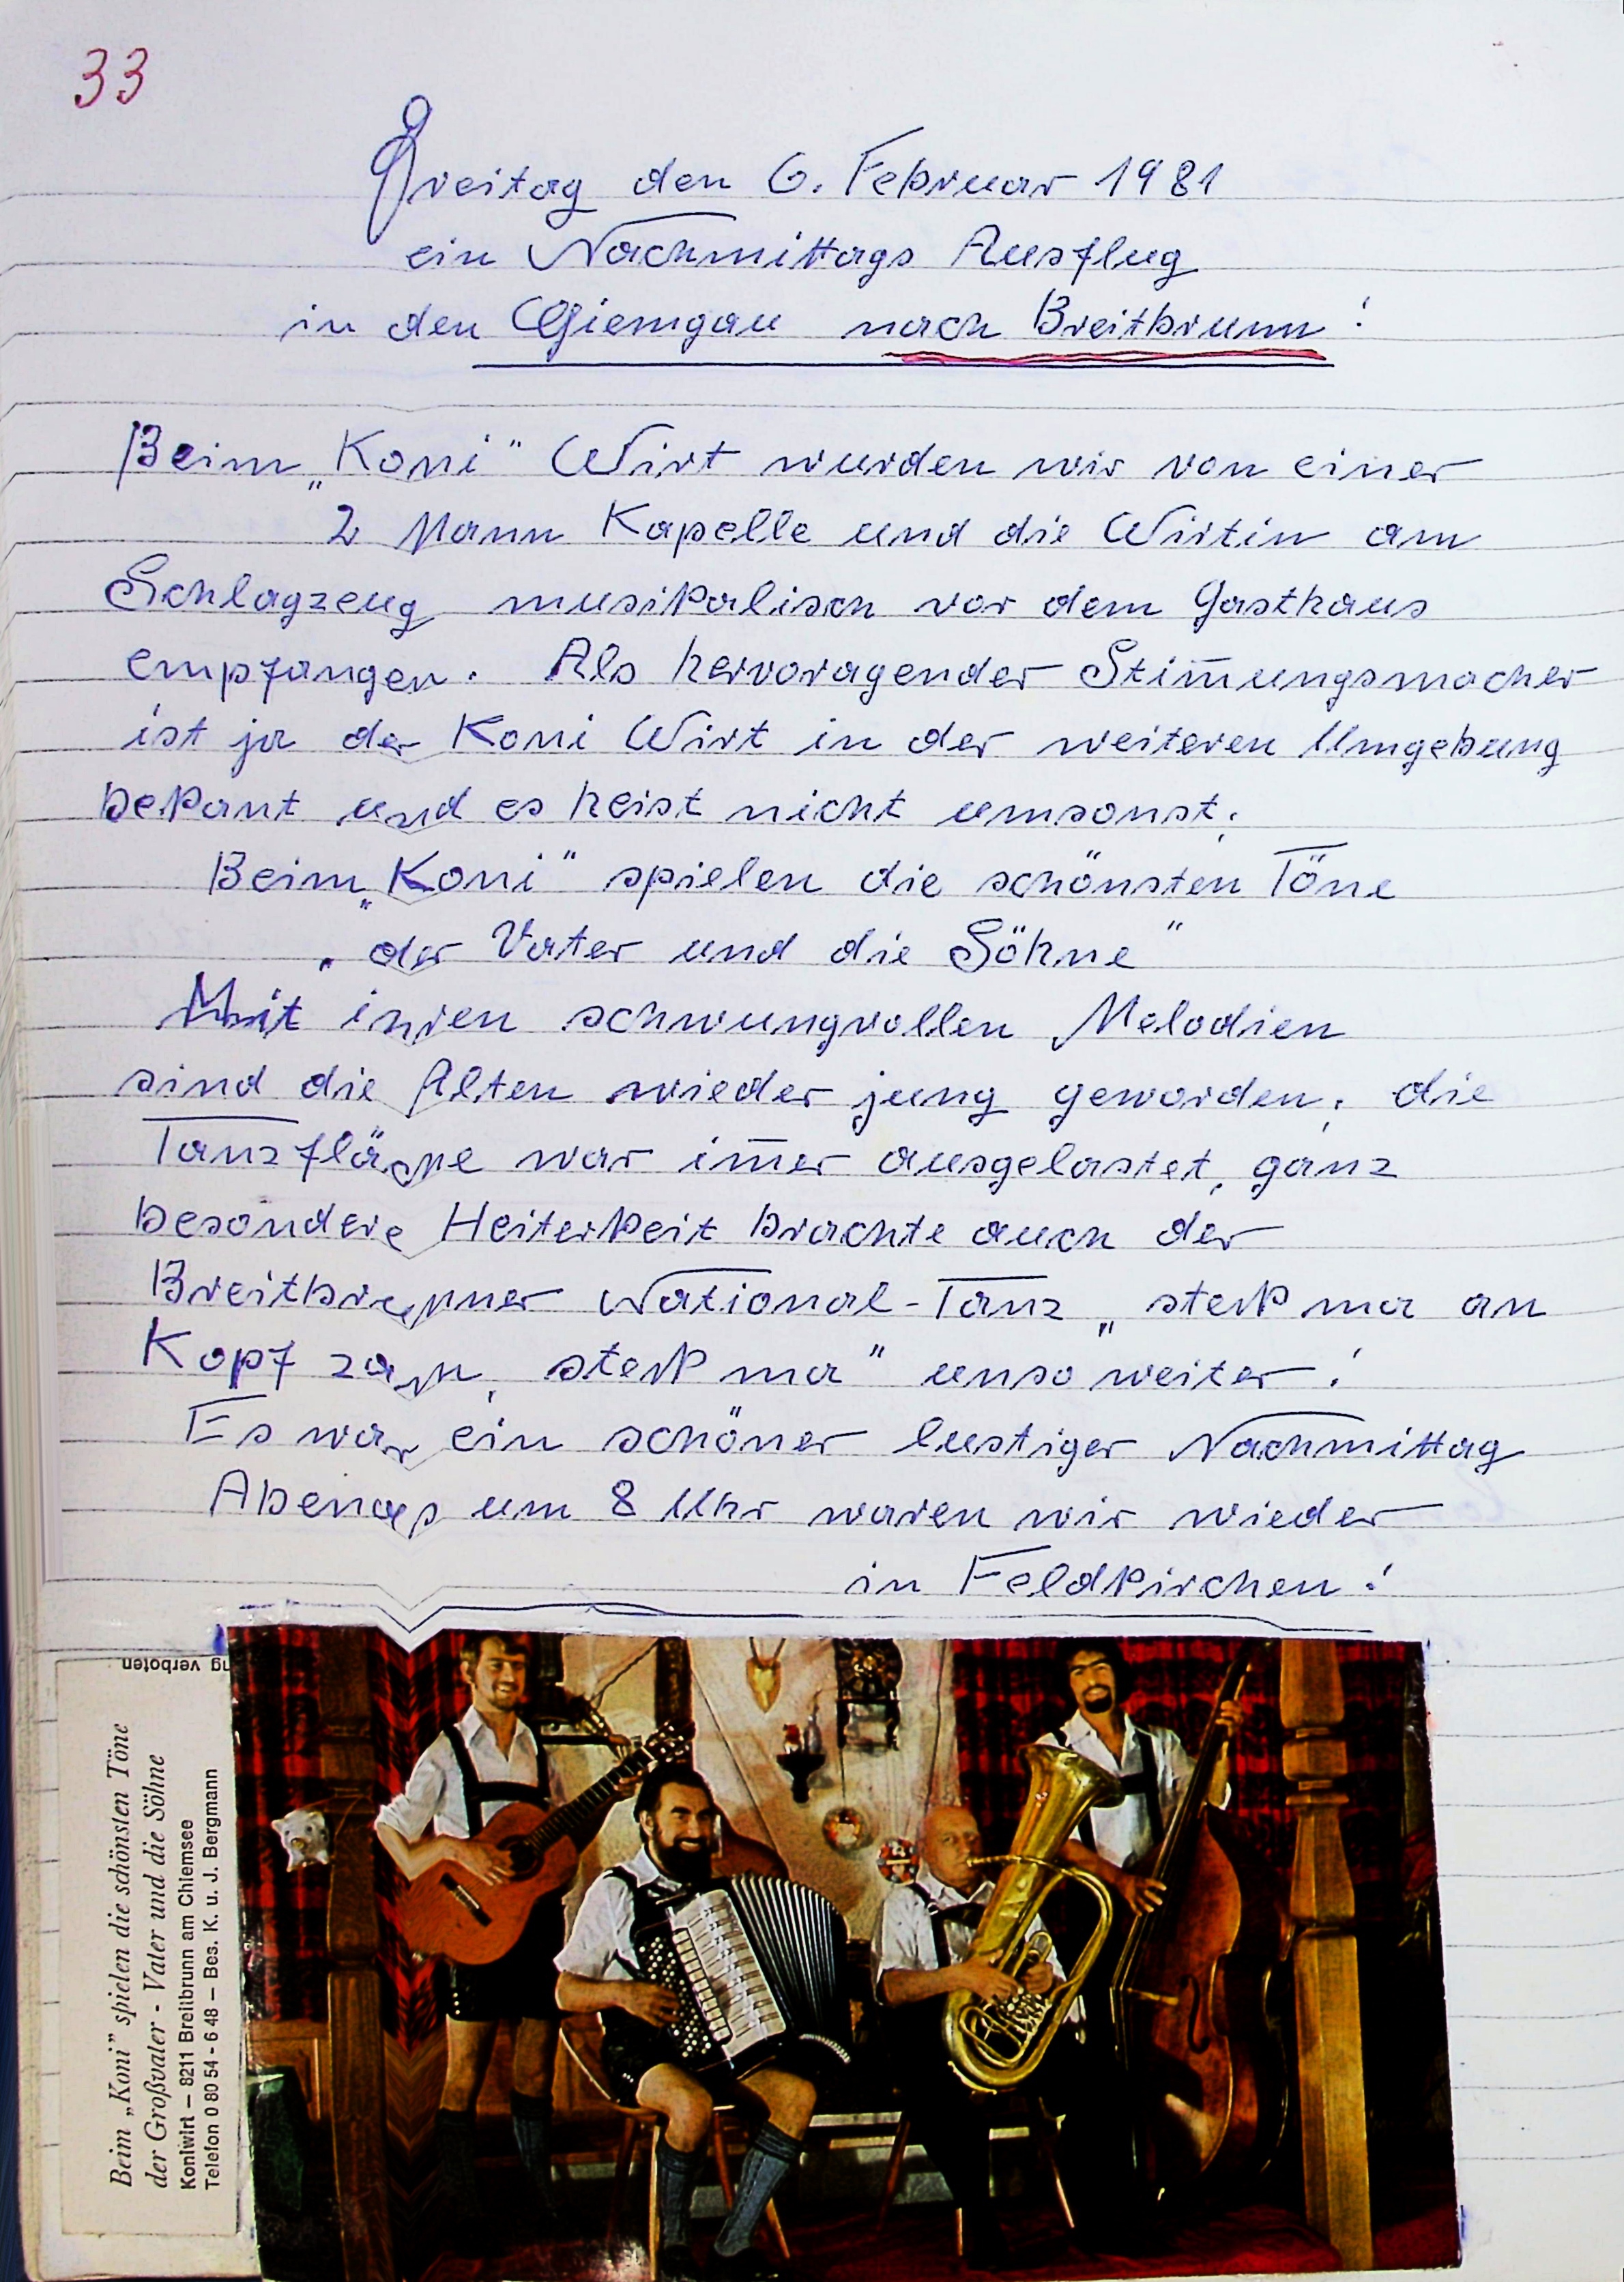 33
Freitag den 6. Februar 1981
ein Nachmittags Ausflug
in den Chiemgau nach Breitbrunn!
Beim „Koni" Wirt wurden wir von einer
2 Mann Kapelle und die Wirtin am
Schlagzeug musikalisch vor dem Gasthaus
empfangen. Als hervoragender Stim̅ungsmacher
ist ja der Koni Wirt in der weiteren Umgebung
bekant und es heist nicht umsonst;
Beim „Koni" spielen die schönsten Töne
„der Vater und die Söhne"
Mit ihren schwungvollen Melodien
sind die Alten wieder jung geworden; die
Tanzfläche war im̅er ausgelastet, ganz
besondere Heiterkeit brachte auch der
Breitbrunner National-Tanz „steck ma an
Kopf zam, steck ma" unso weiter!
Es war ein schöner lustiger Nachmittag
Abends um 8 Uhr waren wir wieder
in Feldkirchen!
ng verboten
Beim „Koni" spielen die schönsten Töne
der Großvater - Vater und die Söhne
Koniwirt – 8211 Breitbrunn am Chiemsee
Telefon 0 80 54 - 6 48 – Bes. K. u. J. Bergmann